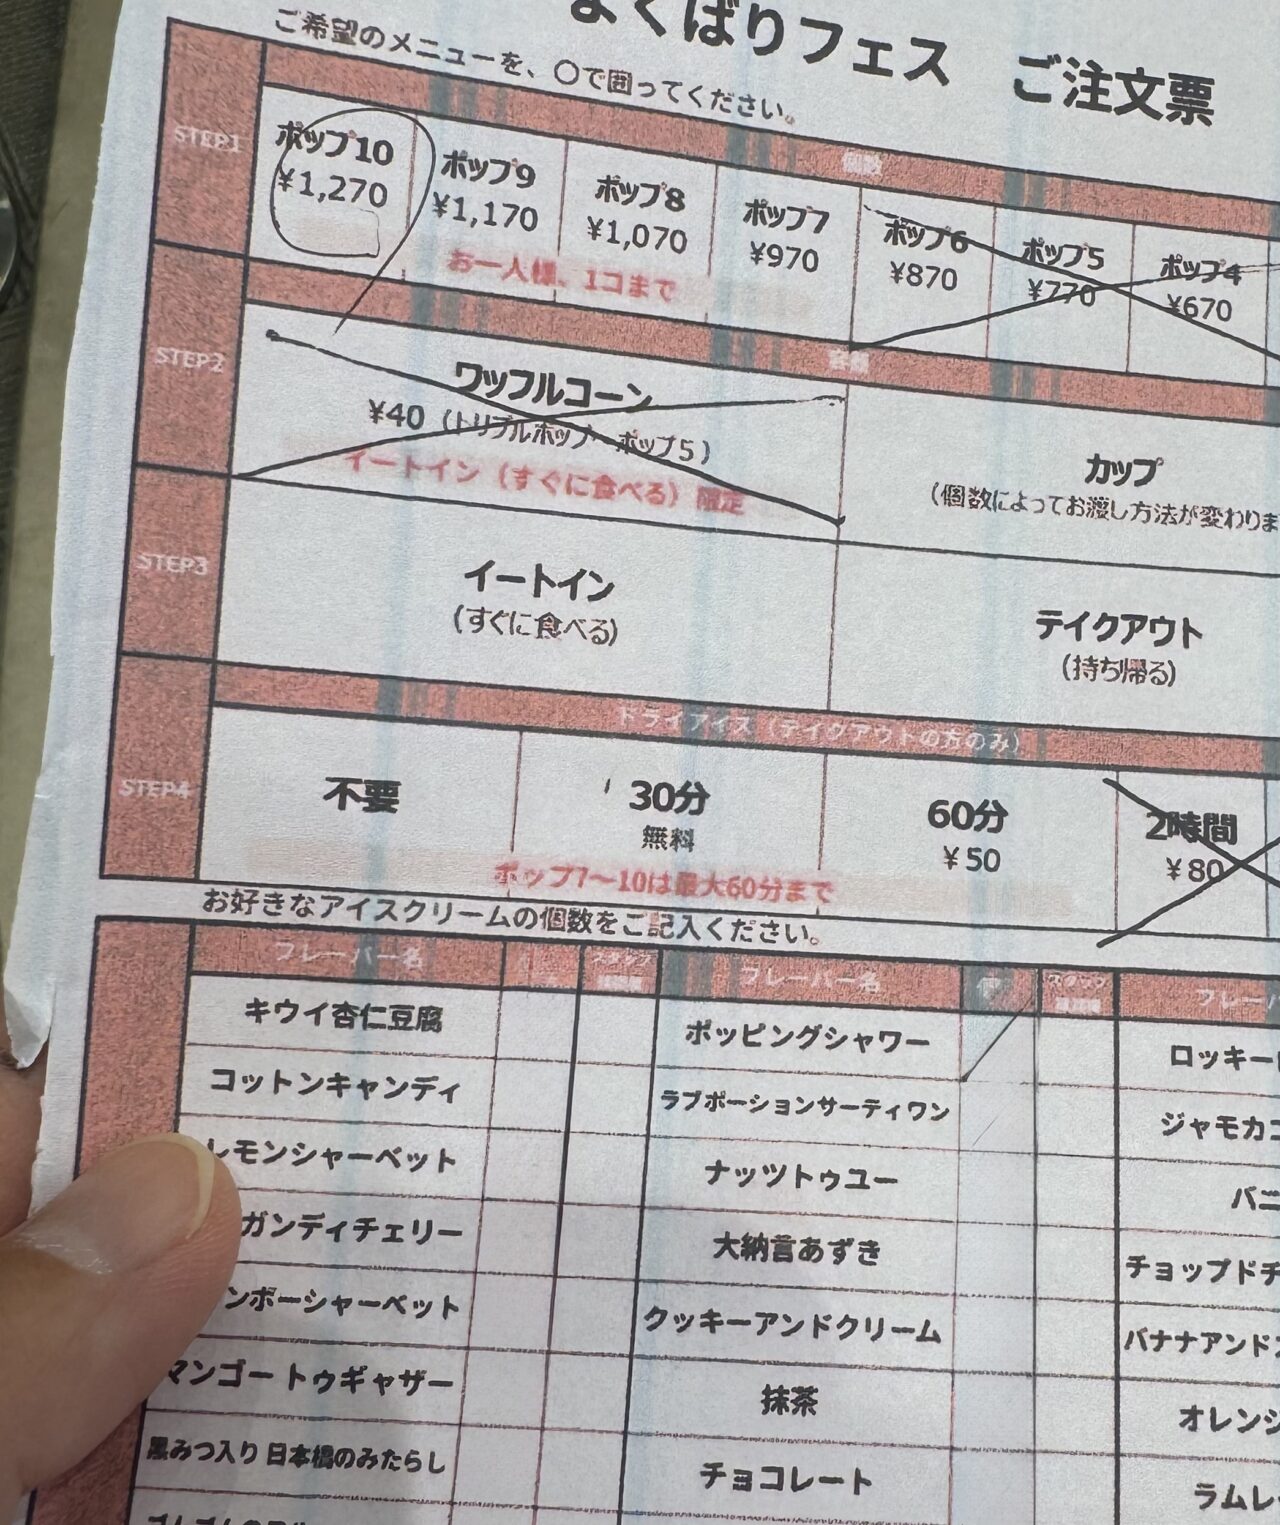 よくばりフェス ご注文票
ご希望のメニューを、〇で囲ってください。
STEP1
個数
ポップ10
¥1,270
ポップ9
¥1,170
ポップ8
¥1,070
ポップ7
¥970
ポップ6
¥870
ポップ5
¥770
ポップ4
¥670
お一人様、1コまで
STEP2
容器
ワッフルコーン
¥40 (トリプルポップ~ポップ5)
イートイン(すぐに食べる)限定
カップ
(個数によってお渡し方法が変わりま
STEP3
イートイン
(すぐに食べる)
テイクアウト
(持ち帰る)
STEP4
ドライアイス(テイクアウトの方のみ)
不要
30分
無料
60分
¥50
2時間
¥80
ポップ7~10は最大60分まで
お好きなアイスクリームの個数をご記入ください。
フレーバー名
スタッフ
フレーバー名
スタッフ
フレーバ
キウイ杏仁豆腐
ポッピングシャワー
ロッキー
コットンキャンディ
ラブポーションサーティワン
ジャモカ
レモンシャーベット
ナッツトゥユー
バニ
ガンディチェリー
大納言あずき
チョップドチ
ンボーシャーベット
クッキーアンドクリーム
バナナアンド
マンゴートゥギャザー
抹茶
オレンジ
黒みつ入り 日本橋のみたらし
チョコレート
ラムレ